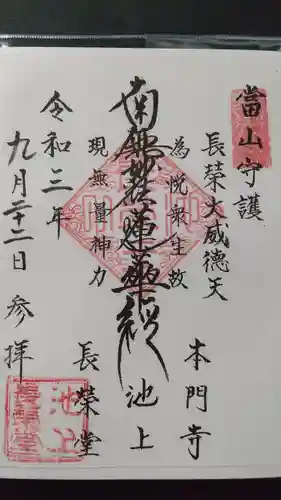 當山守護
長榮大威德天
本門寺
為悦衆生故
南無妙法蓮華経
池上
現無量神力
長榮堂
令和三年
九月二十二日 参拝
池上
長榮堂